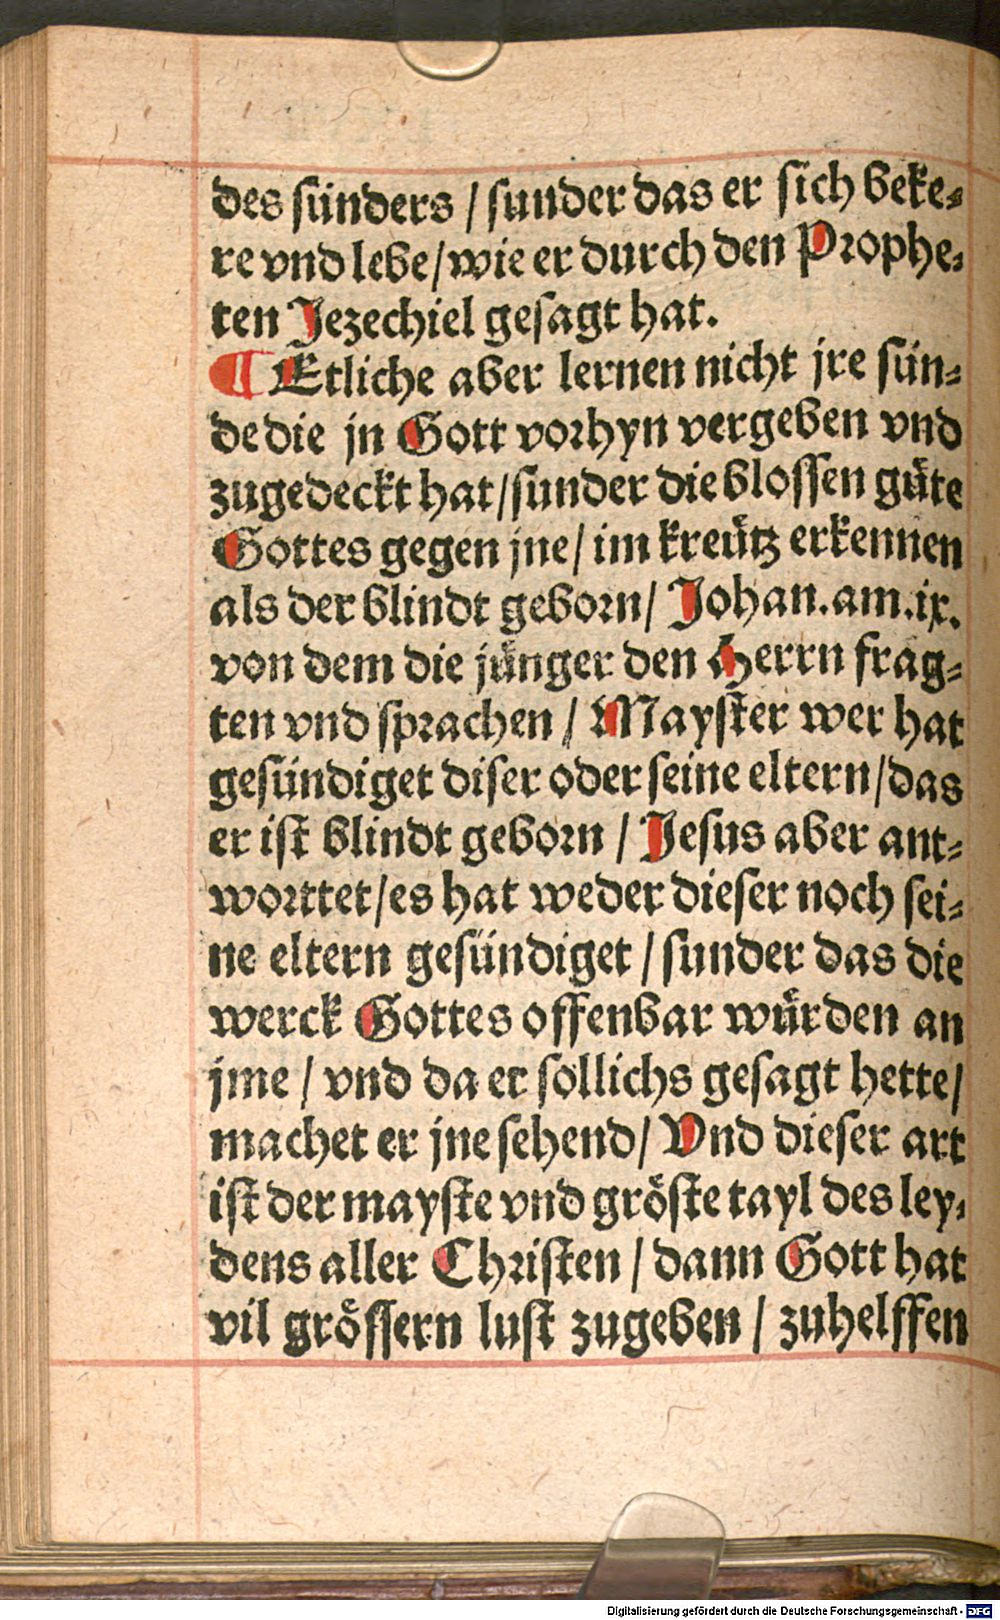 des sünders / sunder das er sich beke⸗
re vnd lebe / wie er durch den Prophe⸗
ten Jezechiel gesagt hat.
¶ Etliche aber lernen nicht jre sün⸗
de die jn Gott vorhyn vergeben vnd
zugedeckt hat / sunder die blossen güte
Gottes gegen jne / im kreütz erkennen
als der blindt geborn / Johan. am .ix.
von dem die jünger den Herrn frag⸗
ten vnd sprachen / Mayster wer hat
gesündiget diser oder seine eltern / das
er ist blindt geborn / Jesus aber ant⸗
worttet / es hat weder dieser noch sei⸗
ne eltern gesündiget / sunder das die
werck Gottes offenbar würden an
jme / vnd da er söllichs gesagt hette /
machet er jne sehend / Vnd dieser art
ist der mayste vnd gröste tayl des ley⸗
dens aller Christen / dann Gott hat
vil grössern lust zugeben / zuhelffen
Digitalisierung gefördert durch die Deutsche Forschungsgemeinschaft - DFG